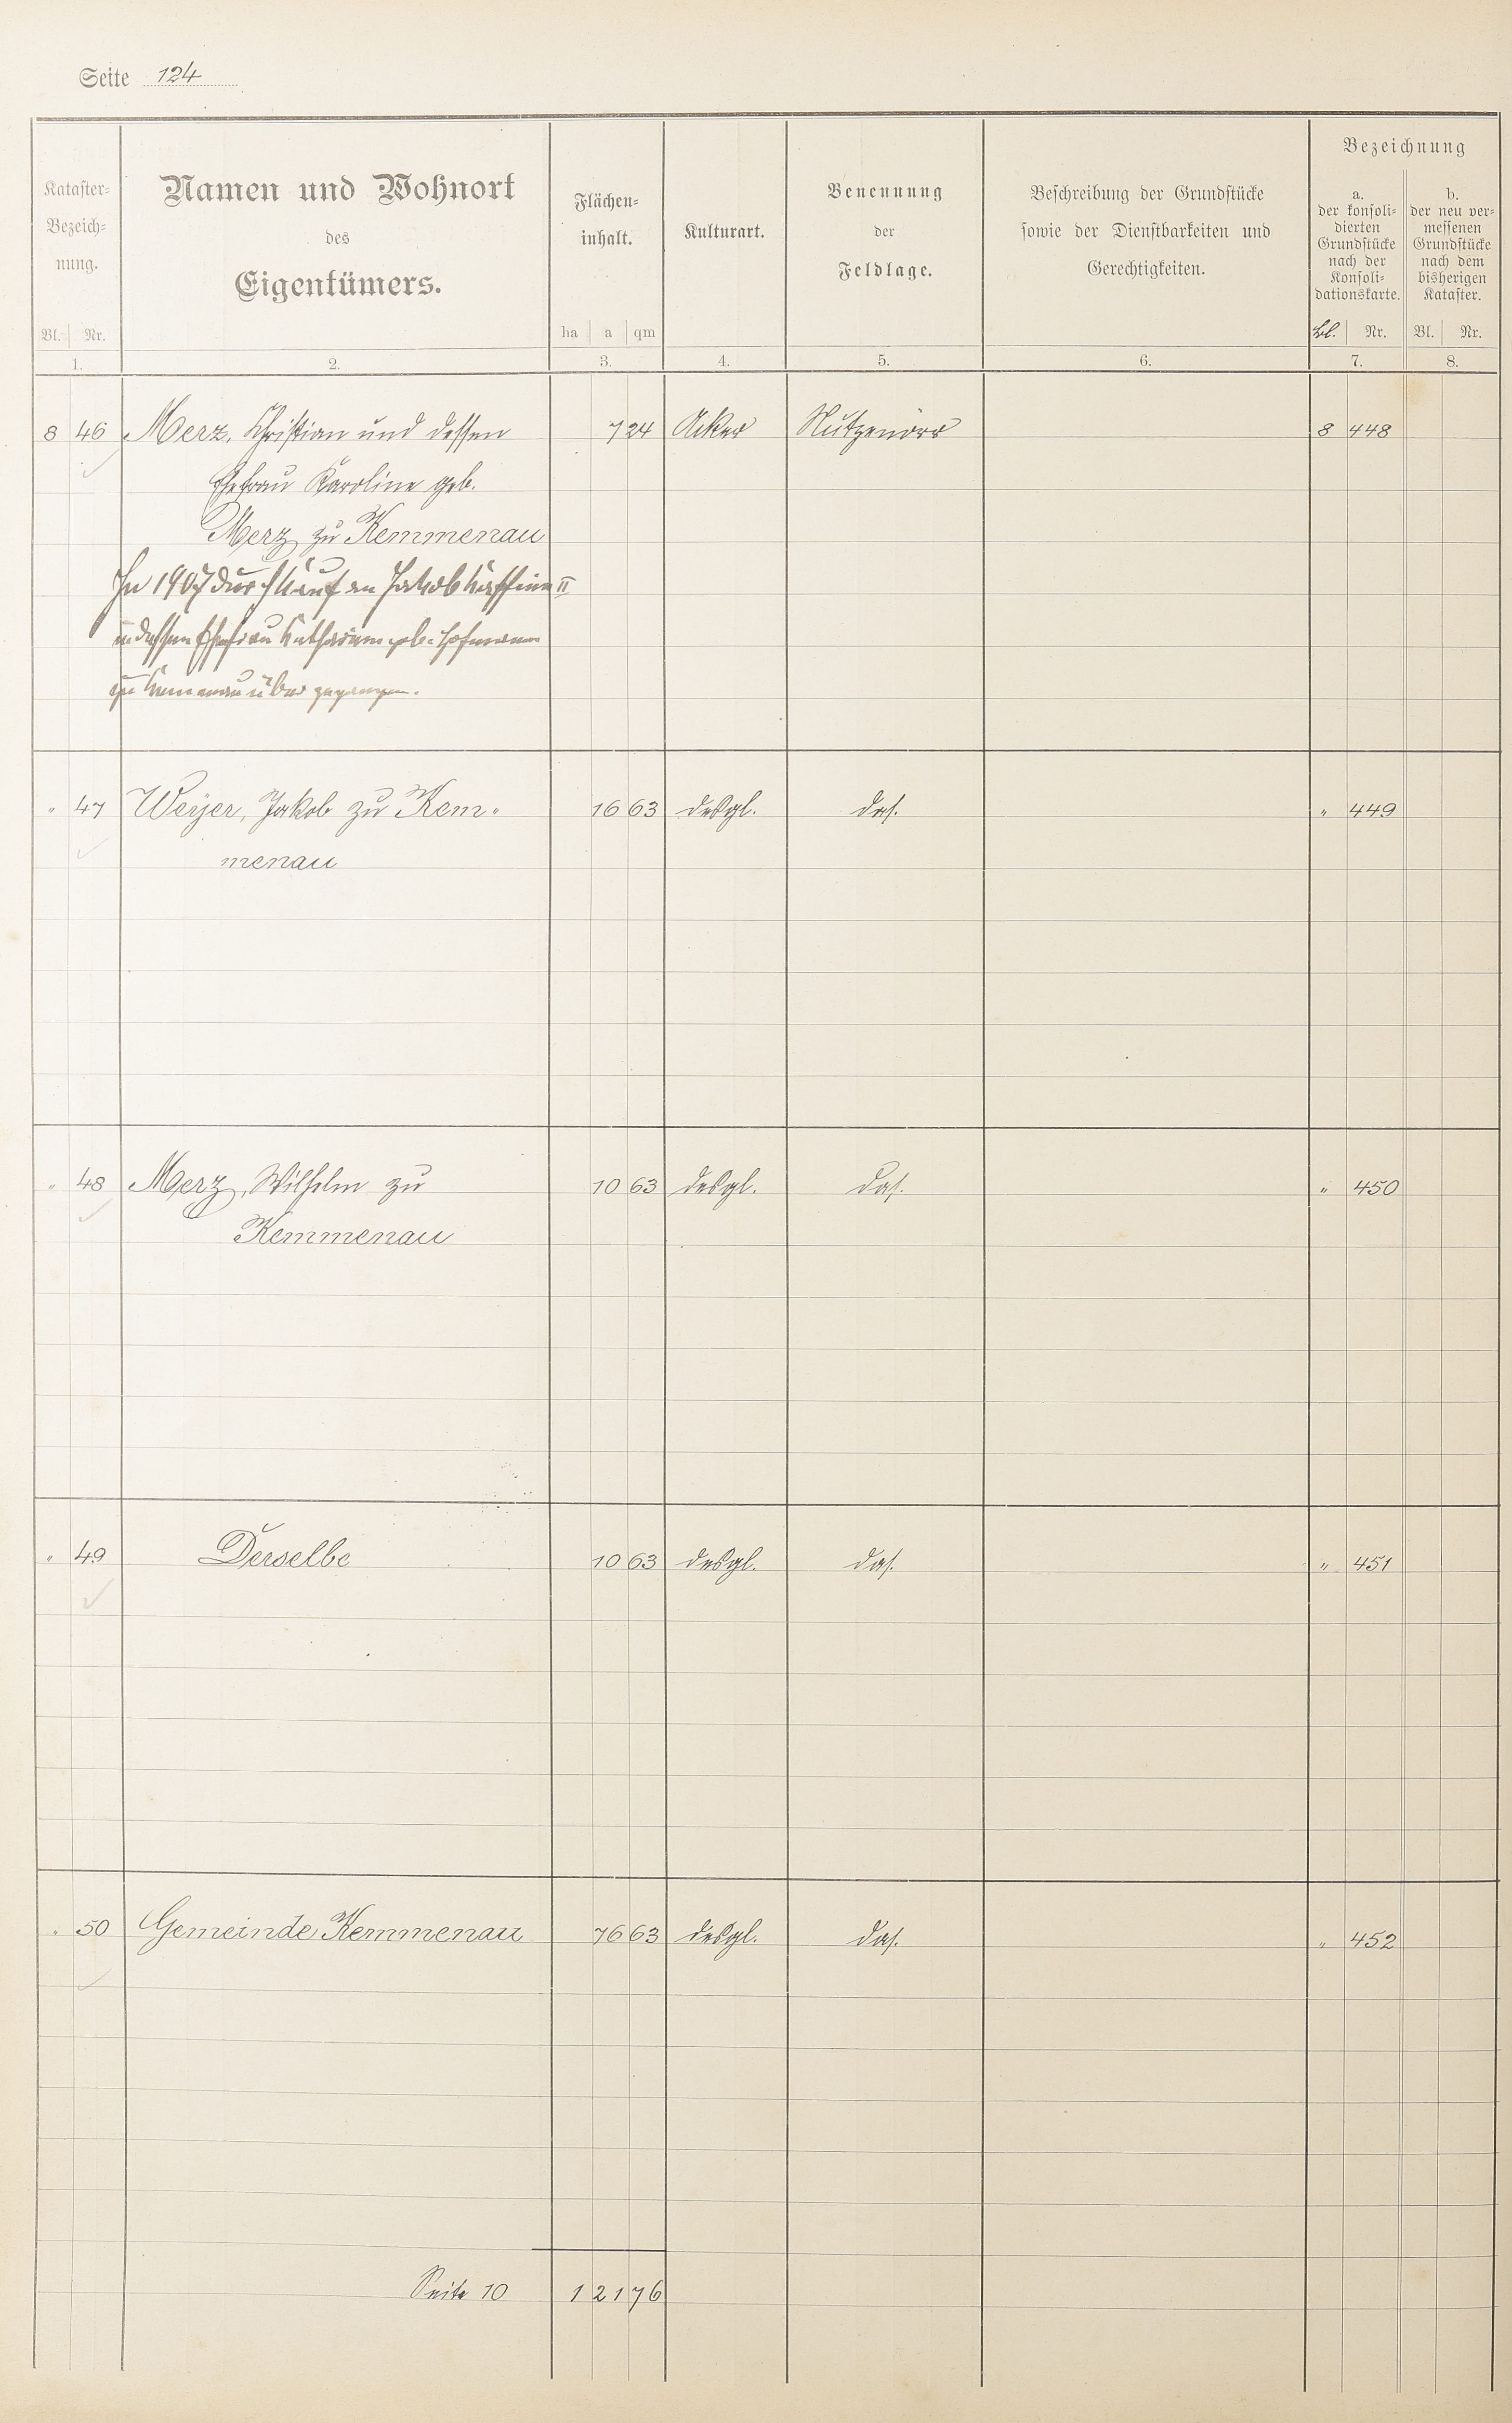 Seite 124
Kataster-
Bezeich-
nung.
Bl. Nr.
1.
Namen und Wohnort
des
Eigentümers.
2.
Flächen-
inhalt.
ha a qm
3.
Kulturart.
4.
Benennung
der
Feldlage.
5.
Beschreibung der Grundstücke
sowie der Dienstbarkeiten und
Gerechtigkeiten.
6.
Bezeichnung
a.
der konsoli-
dierten
Grundstücke
nach der
Konsoli-
dationskarte.
Bl. Nr.
7.
b.
der neu ver-
messenen
Grundstücke
nach dem
bisherigen
Kataster.
Bl. Nr.
8.
8 46 Merz, Christian und dessen 7 24 Acker 8 448
Ehefrau Karoline geb.
Merz zu Kemmenau
In 1907 durch Kauf an Jakob II
u. dessen Ehefrau Katharina geb. Hofmann
zu Kemmenau übergegangen.
" 47 Weyer, Jakob zu Kem- 16 63 desgl. das. " 449
menau
" 48 Merz, Wilhelm zu 10 63 desgl. das. " 450
Kemmenau
" 49 Derselbe 10 63 desgl. das. " 451
" 50 Gemeinde Kemmenau 76 63 desgl. das. " 452
Seite 10 1 21 76